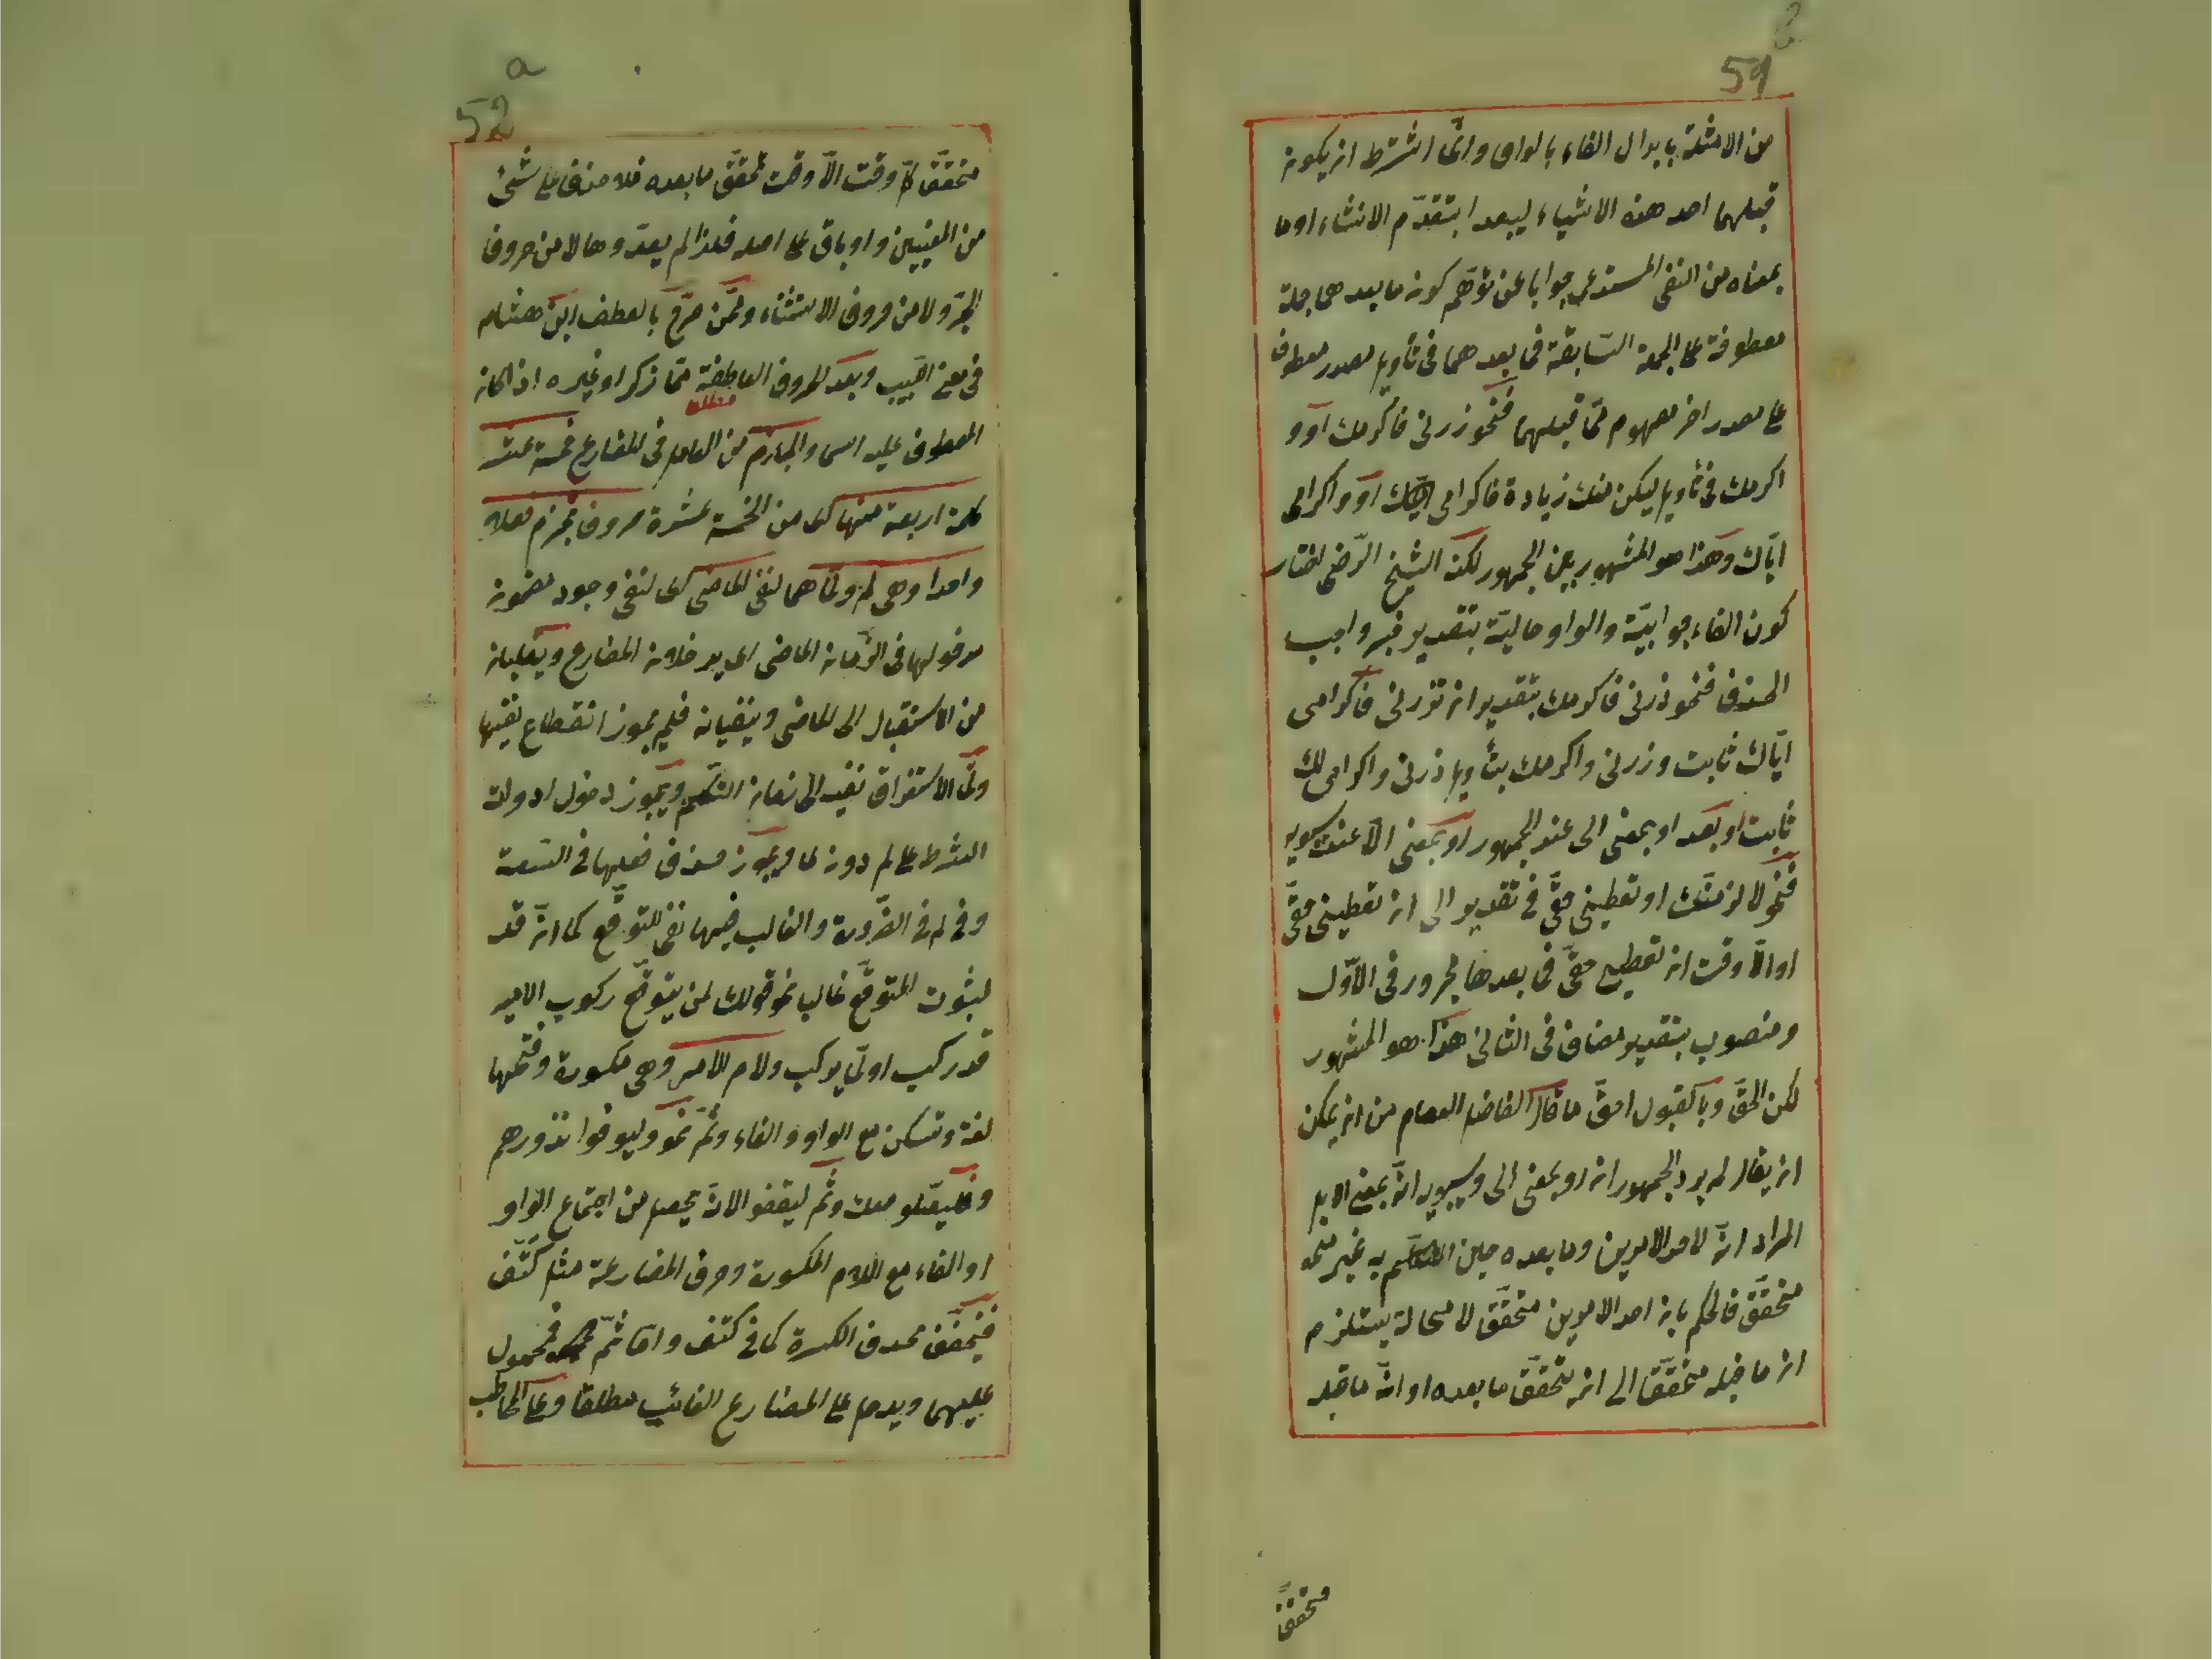 59
من الامثلة بابدال الفاء بالواو وانّما اشترط ان يكون
قبلهما احد هذه الاشياء ليبعدا بتقدّم الانشاء او ما
بمعناه من النفى المستدعى جوابا عن توهّم كون ما بعدهما جملة
معطوفة على الجملة السّابقة فما بعدهما فى تأويل مصدر معطوف
على مصدر اخر مفهوم ممّا قبلهما فنحو زرنى فاكرمك او و
اكرمك فى تأويل ليكن منك زيادة فاكرامى ايّاك او واكرامى
ايّاك وهذا هو المشهور بين الجمهور لكن الشيخ الرّضى اختار
كون الفاء جوابيّة والواو حاليّة بتقدير خبر واجب
الحذف فنحو زرنى فاكرمك بتقدير ان تزرنى فاكرامى
ايّاك ثابت وزرنى واكرمك بتأويل زرنى واكرامى لك
ثابت او بعد او بمعنى الى عند الجمهور او بمعنى الّا عند سيبويه
فنحو لالزمنّك او تعطينى حقّى فى تقدير الى ان تعطينى حقّى
او الّا وقت ان تعطينى حقّى فما بعدها مجرور فى الاوّل
ومنصوب بتقدير مضاف فى الثانى هذا هو المشهور
لكن الحقّ وبالقبول احقّ ما قال الفاضل العصام من انه يمكن
ان يقال لم يرد الجمهور ان او بمعنى الى وسيبويه انّه بمعنى الا بل
المراد انّه لاحد الامرين وما بعده حين التكلّم به غير
متحقّق فالحكم بان احد الامرين متحقّق لا محالة يستلزم
ان ما قبله متحقّق الى ان يتحقّق ما بعده او انّه ما قبله
متحقق
a
52
متحقّق كلّ وقت الّا وقت تحقّق ما بعده فلا منف على شئ
من المعنيين واو باق على اصله فلذا لم يعدّوها لا من حروف
الجرّ ولا من حروف الاستثناء وممّن صرّح بالعطف ابن هشام
فى مغنى اللبيب وبعد الحروف العاطفة ممّا ذكر او غيره اذا كان
مطلب
المعطوف عليه اسما والجازم من العامل فى المضارع خمسة عشر
كلمة اربعة منها اى من الخمسة عشرة حروف تجزم فعلا
واحدا وهى لم ولمّا هما لنفى الماضى اى لنفى وجود مضمون
مدخولهما فى الزّمان الماضى اى يدخلان المضارع ويقلبانه
من الاستقبال الى الماضى وينفيانه فلم يجوز انقطاع نفيها
ولمّا لاستغراق نفيه الى زمان التكلّم ويجوز دخول ادوات
الشرط على لم دون لما ويجوز حذف فعلها فى السّعة
وفى لم فى الضّرورة والغالب فيها نفى للتوقّع كما انّ قد
لثبوت المتوقّع غالبا نحو قولك لمن يتوقّع ركوب الامير
قد ركب او لمّا يركب ولام الامر وهى مكسورة وفتحها
لغة وتسكن مع الواو والفاء وثمّ نحو وليوفوا نذورهم
وفليصلّوا معك وثمّ ليقضوا لانّه يحصل من اجتماع الواو
او الفاء مع اللام المكسورة وحرف المضارعة مثل كتف
فيخفّف بحذف الكسرة كما فى كتف وامّا ثمّ فمحمول
عليهما ويدخل على المضارع الغائب مطلقا وعلى المخاطب